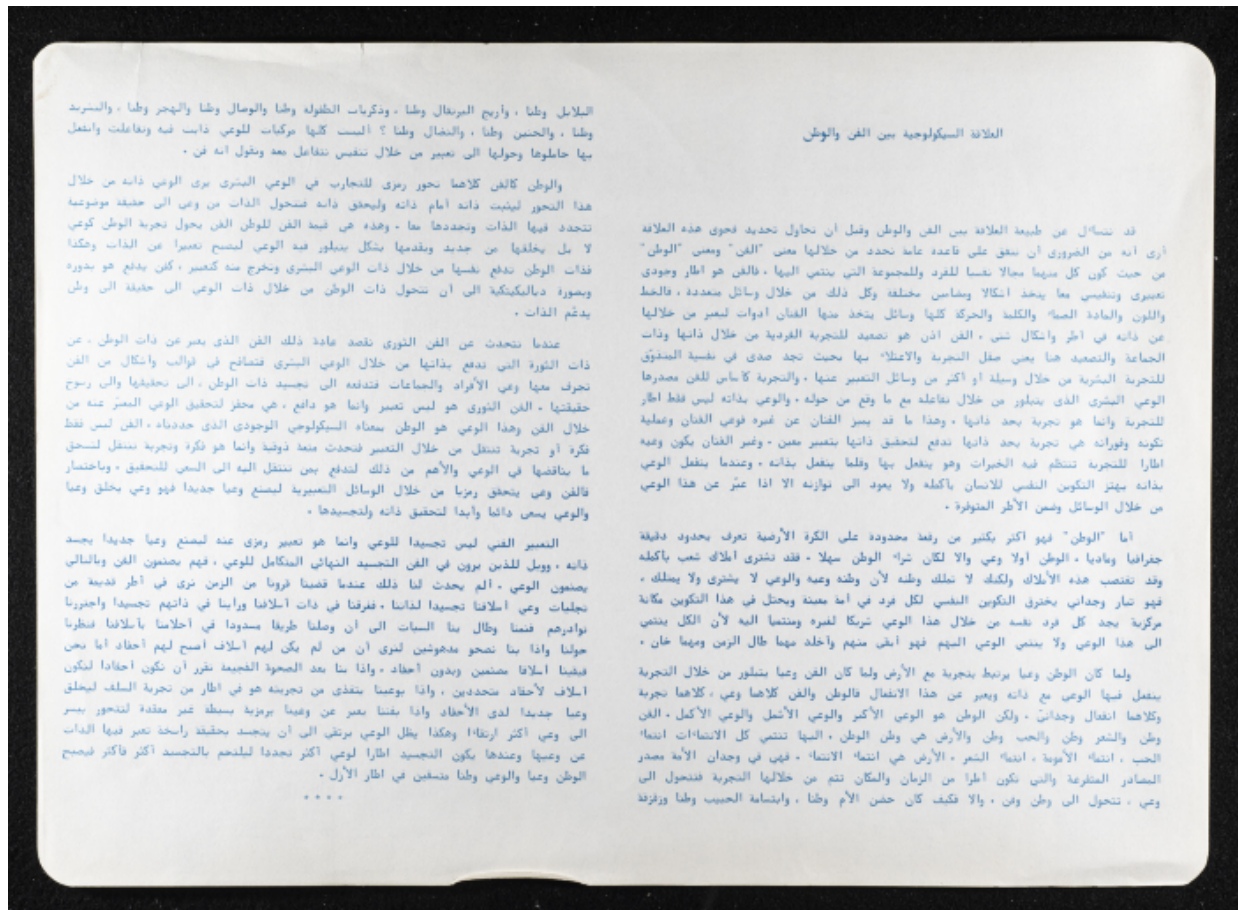 العلاقة السيكولوجية بين الفن والوطن
قد نتساءل عن طبيعة العلاقة بين الفن والوطن وقبل أن نحاول تحديد فحوى هذه العلاقة
أرى أنه من الضرورى أن نتفق على قاعدة عامة نحدد من خلالها معنى "الفن" ومعنى "الوطن"
من حيث كون كل منهما مجالا نفسيا للفرد وللمجموعة التي ينتمي اليها . فالفن هو اطار وجودى
تعبيرى وتنفيس معا يتخذ أشكالا ومضامين مختلفة وكل ذلك من خلال وسائل متعددة . فالخط
واللون والمادة الصماء والكلمة والحركة كلها وسائل يتخذ منها الفنان أدوات ليعبر من خلالها
عن ذاته في أطر وأشكال شتى . الفن اذن هو تصعيد للتجربة الفردية من خلال ذاتها وذات
الجماعة والتصعيد هنا يعني صقل التجربة والاعتلاء بها بحيث تجد صدى في نفسية المتذوّق
للتجربة البشرية من خلال وسيلة أو اكثر من وسائل التعبير عنها . والتجربة كأساس للفن مصدرها
الوعي البشرى الذى يتبلور من خلال تفاعله مع ما وقع من حوله . والوعي بذاته ليس فقط اطار
للتجربة وانما هو تجربة بحد ذاتها . وهذا ما قد يميز الفنان عن غيره فوعي الفنان وعملية
تكونه وفورانه هي تجربة بحد ذاتها تدفع لتحقيق ذاتها بتعبير معين . وغير الفنان يكون وعيه
اطارا للتجربة تنتظم فيه الخبرات وهو ينفعل بها وقلما ينفعل بذاته . وعندما ينفعل الوعي
بذاته يهتز التكوين النفسي للانسان بأكمله ولا يعود الى توازنه الا اذا عبّر عن هذا الوعي
من خلال الوسائل وضمن الأطر المتوفرة .
أما "الوطن" فهو اكثر بكثير من رقعة محدودة على الكرة الأرضية تعرف بحدود دقيقة
جغرافيا وماديا . الوطن أولا وعي والا لكان شراء الوطن سهلا . فقد تشترى أملاك شعب بأكمله
وقد تغتصب هذه الأملاك ولكنك لا تملك وطنه لأن وطنه وعيه والوعي لا يشترى ولا يملك .
فهو تيار وجداني يخترق التكوين النفسي لكل فرد في أمة معينة ويحتل في هذا التكوين مكانة
مركزية يجد كل فرد نفسه من خلال هذا الوعي شريكا لغيره ومنتميا اليه لأن الكل ينتمي
الى هذا الوعي ولا ينتمي الوعي اليهم فهو أبقى منهم وأخلد مهما طال الزمن ومهما خان .
ولما كان الوطن وعيا يرتبط بتجربة مع الأرض ولما كان الفن وعيا يتبلور من خلال التجربة
ينفعل فيها الوعي مع ذاته ويعبر عن هذا الانفعال فالوطن والفن كلاهما وعي . كلاهما تجربة
وكلاهما انفعال وجدانيّ . ولكن الوطن هو الوعي الأكبر والوعي الأشمل والوعي الأكمل . الفن
وطن والشعر وطن والحب وطن والأرض هي وطن الوطن . اليها تنتمي كل الانتماءات انتماء
الحب ، انتماء الأمومة ، انتماء الشعر . الأرض هي انتماء الانتماء . فهي في وجدان الأمة مصدر
المصادر المتفرعة والتي تكون أطرا من الزمان والمكان تتم من خلالها التجربة فتتحول الى
وعي . تتحول الى وطن وفن . والا فكيف كان حضن الأم وطنا ، وابتسامة الحبيب وطنا وزقزقة
البلابل وطنا ، وأريج البرتقال وطنا . وذكريات الطفولة وطنا والوصال وطنا والهجر وطنا . والتشريد
وطنا ، والحنين وطنا ، والنضال وطنا ؟ أليست كلها مركبات للوعي ذابت فيه وتفاعلت وانفعل
بها حاملوها وحولها الى تعبير من خلال تنفيس نتفاعل معه ونقول انه فن .
والوطن كالفن كلاهما تحور رمزى للتجارب في الوعي البشرى يرى الوعي ذاته من خلال
هذا التحور ليثبت ذاته أمام ذاته وليحقق ذاته فتتحول الذات من وعي الى حقيقة موضوعية
تتجدد فيها الذات وتجددها معا . وهذه هي قيمة الفن للوطن الفن يحول تجربة الوطن كوعي
لا بل يخلقها من جديد ويقدمها بشكل يتبلور فيه الوعي ليصبح تعبيرا عن الذات وهكذا
فذات الوطن تدفع نفسها من خلال ذات الوعي البشرى وتخرج منه كتعبير . كفن يدفع هو بدوره
وبصورة دياليكتيكية الى أن تتحول ذات الوطن من خلال ذات الوعي الى حقيقة الى وطن
يدعّم الذات .
عندما نتحدث عن الفن الثورى نقصد عادة ذلك الفن الذى يعبر عن ذات الوطن . عن
ذات الثورة التي تدفع بذاتها من خلال الوعي البشرى فتصاغ في قوالب وأشكال من الفن
تجرف معها وعي الأفراد والجماعات فتدفعه الى تجسيد ذات الوطن . الى تحقيقها والى رسوخ
حقيقتها . الفن الثورى هو ليس تعبير وانما هو دافع . هي محفز لتحقيق الوعي المعبّر عنه من
خلال الفن وهذا الوعي هو الوطن بمعناه السيكولوجي الوجودى الذى حددناه . الفن ليس فقط
فكرة أو تجربة تنتقل من خلال التعبير فتحدث متعة ذوقية وانما هو فكرة وتجربة تنتقل لتسحق
ما يناقضها في الوعي والأهم من ذلك لتدفع بمن تنتقل اليه الى السعي للتحقيق . وباختصار
فالفن وعي يتحقق رمزيا من خلال الوسائل التعبيرية ليصنع وعيا جديدا فهو وعي يخلق وعيا
والوعي يسعى دائما وأبدا لتحقيق ذاته ولتجسيدها .
التعبير الفني ليس تجسيدا للوعي وانما هو تعبير رمزى عنه ليصنع وعيا جديدا يجسد
ذاته . وويل للذين يرون في الفن التجسيد النهائي المتكامل للوعي . فهم يصنمون الفن وبالتالي
يصنمون الوعي . ألم يحدث لنا ذلك عندما قضينا قرونا من الزمن نرى في أطر قديمة من
تجليات وعي أسلافنا تجسيدا لذاتنا . فغرقنا في ذات أسلافنا ورأينا في ذاتهم تجسيدا واجتررنا
نوادرهم فنمنا وطال بنا السبات الى أن وصلنا طريقا مسدودا في أحلامنا بأسلافنا فنظرنا
حولنا واذا بنا نصحو مدهوشين لنرى أن من لم يكن لهم أسلاف أصبح لهم أحفاد أما نحن
فبقينا أسلافا مصنمين وبدون أحفاد . واذا بنا بعد الصحوة الفجيعة نقرر أن نكون أحفادا لنكون
أسلاف لأحفاد متجددين . واذا بوعينا يتغذى من تجربته هو في اطار من تجربة السلف ليخلق
وعيا جديدا لدى الأحفاد واذا بفننا يعبر عن وعينا برمزية بسيطة غير معقدة لتتحور بيسر
الى وعي أكثر ارتقاءا وهكذا يظل الوعي يرتقي الى أن يتجسد بحقيقة راسخة تعبر فيها الذات
عن وعيها وعندها يكون التجسيد اطارا لوعي اكثر تجددا ليلتحم بالتجسيد اكثر فأكثر فيصبح
الوطن وعيا والوعي وطنا متسقين في اطار الأزل .
* * * *